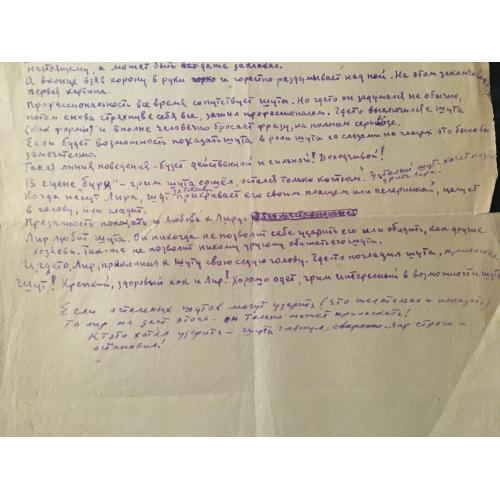 настоящему, а может быть даже заплакал.
А вконце взяв корону в руки и горестно раздумывает над ней. На этом заканчивается
первая картина.
Профессиональность все время сопутствует шуту. Но где то он задумался не обычно,
потом снова стряхнув с себя все, зажил профессионалом. Где то выключился с шута
(как формы) и вполне человечно бросает фразу, на полном серьёзе.
Если будет возможность показать шута в роли шута со слезами на глазах это было бы
замечательно.
Такая линия поведения - будет действенной и сильной! Доходчивой!
В сцене "буря" - грим шута сошёл, остался только костюм.
Когда несут Лира, шут заботливо прикрывает его своим плащем или пелериной, целует
в голову, или гладит.
Преданность показать и любовь к Лиру.
Лир любит шута. Он никогда не позволит себе ударить его или обидеть, как другие
хозяева, так-же не позволит никому другому обижать его шута.
И где то, Лир, приклонил к шуту свою седую голову. Где то погладил шута, приласкал.
Шут! Крепкий, здоровый как и Лир! Хорошо одет, грим интересный в возможности шута
Если остальных шутов могут ударить (что желательно и показать)
то Лир не даст этого - он только может приласкать!
Кто то хотел ударить - шута глянул Лир строго и
остановил!